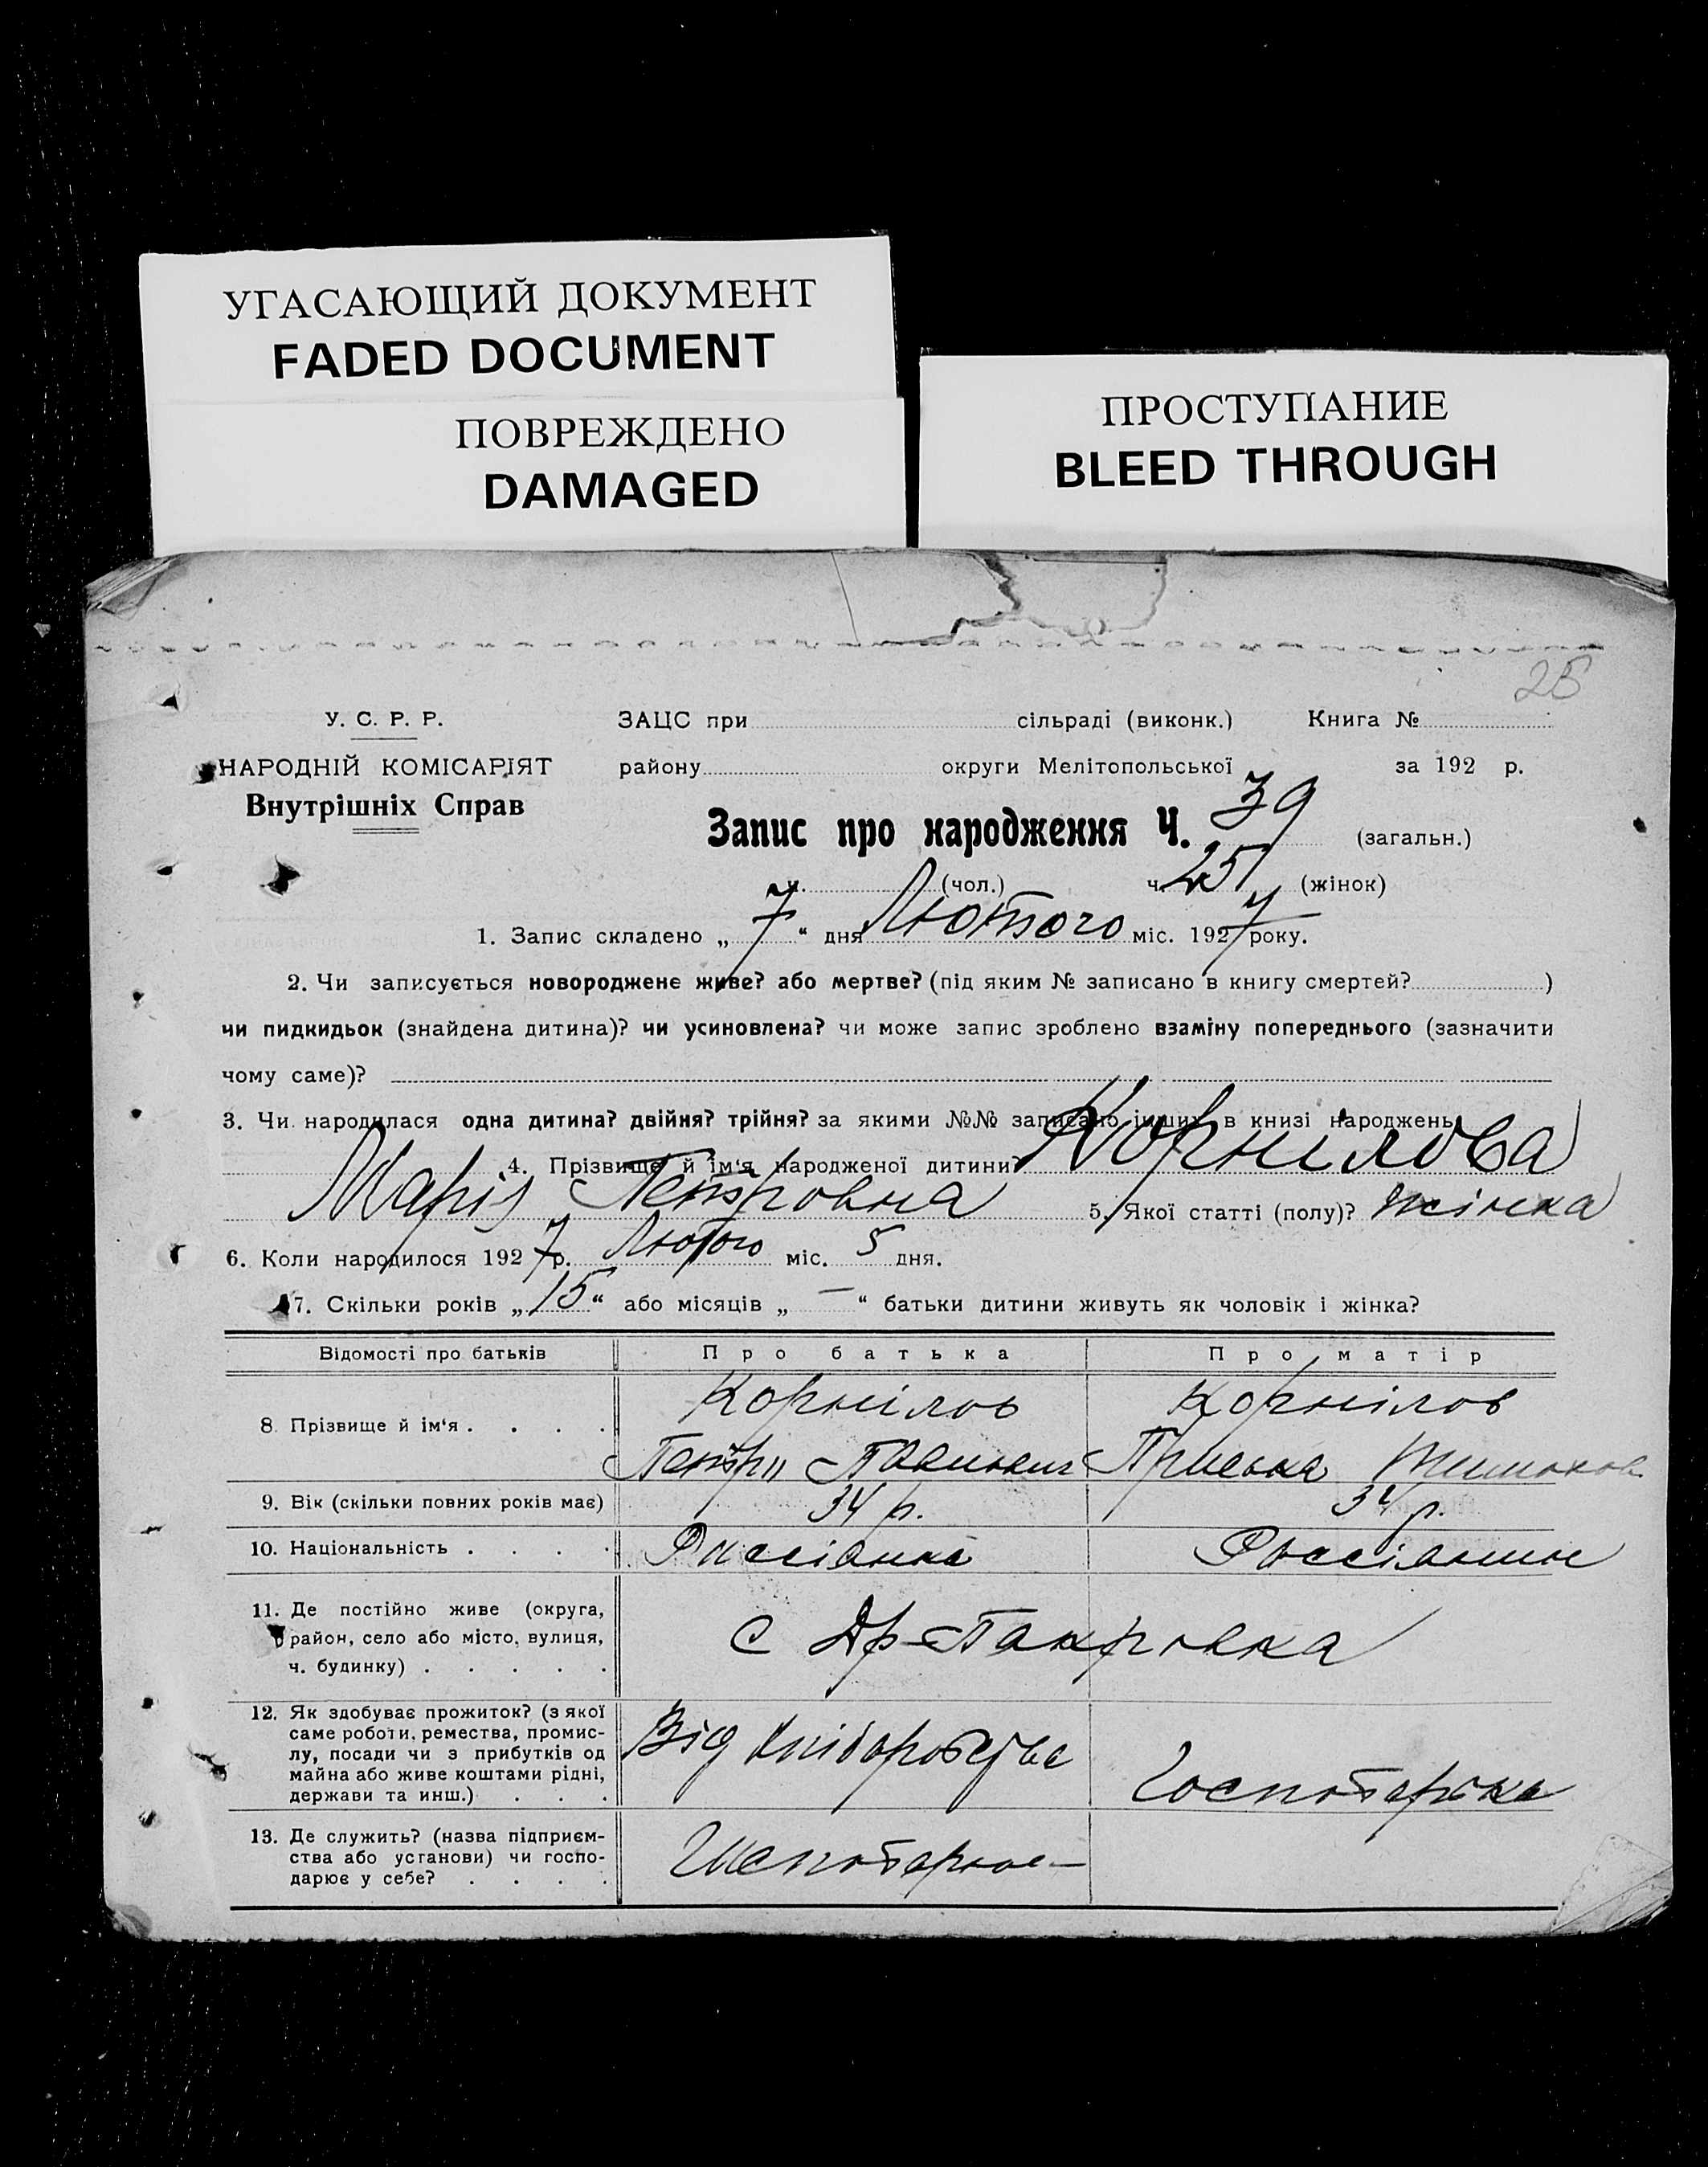 УГАСАЮЩИЙ ДОКУМЕНТ
FADED DOCUMENT
ПОВРЕЖДЕНО
DAMAGED
ПРОСТУПАНИЕ
BLEED THROUGH
25
У. С. Р. Р.
НАРОДНІЙ КОМІСАРІЯТ
Внутрішніх Справ
ЗАЦС при сільраді (виконк.) Книга №
району округи Мелітопольської за 192 р.
Запис про народження Ч. 39 (загальн.)
ч. (чол.) ч. 25 (жінок)
1. Запис складено „ 7 “ дня Лютого міс. 1927 року.
2. Чи записується новороджене живе? або мертве? (під яким № записано в книгу смертей? )
чи пидкидьок (знайдена дитина)? чи усиновлена? чи може запис зроблено взаміну попереднього (зазначити
чому саме)?
3. Чи народилася одна дитина? двійня? трійня? за якими №№ записано інших в книзі народжень
4. Прізвище й ім‘я народженої дитини? Корнилова
Марія Петровна 5. Якої статті (полу)? жінка
6. Коли народилося 1927 р. Лютого міс. 5 дня.
7. Скільки років „ 15 “ або місяців „ — “ батьки дитини живуть як чоловік і жінка?
Відомості про батьків Про батька Про матір
8. Прізвище й ім‘я . . . . Корнілов Корнілов
Петр
9. Вік (скільки повних років має) 34 р. 34 р.
10. Національність . . . .
11. Де постійно живе (округа,
район, село або місто, вулиця,
ч. будинку) . . . . .
с
12. Як здобуває прожиток? (з якої
саме роботи, ремества, промис-
лу, посади чи з прибутків од
майна або живе коштами рідні,
держави та инш.) . . .
Від
13. Де служить? (назва підприєм-
ства або установи) чи госпо-
дарює у себе? . . . .